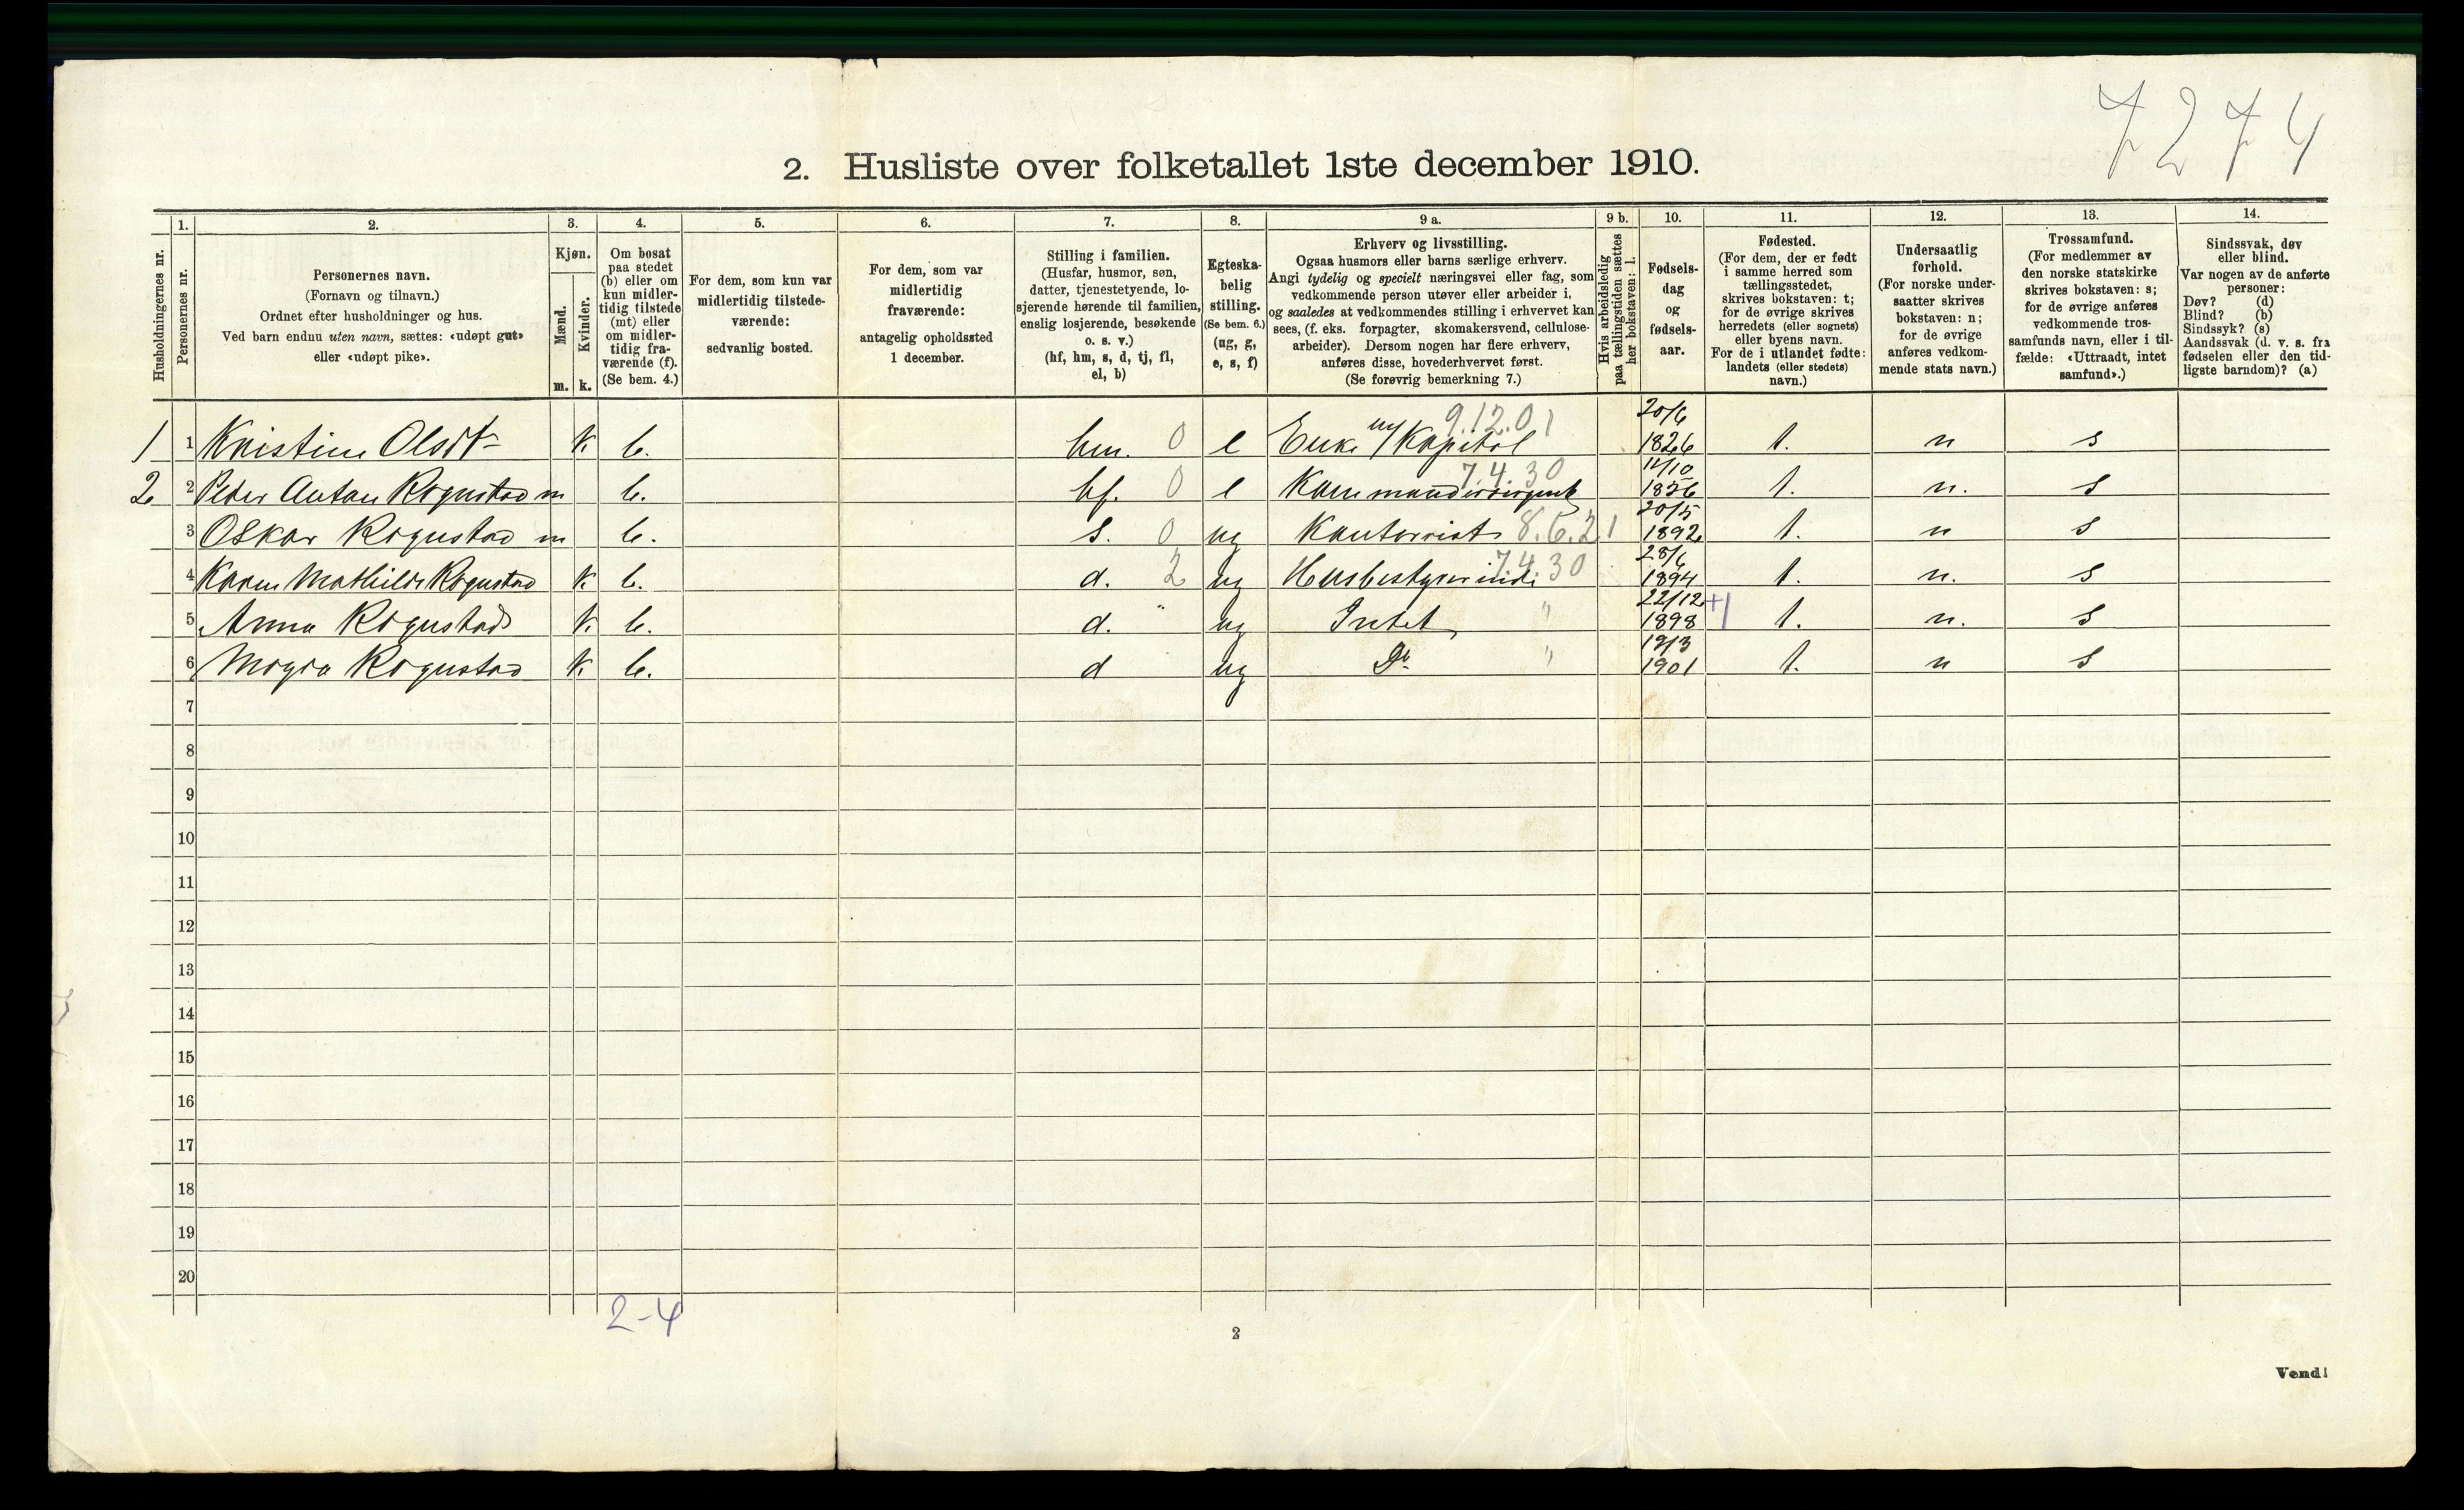 7274
2. Husliste over folketallet 1ste december 1910.
Husholdningernes nr.
1.
Personernes nr.
2.
Personernes navn.
(Fornavn og tilnavn.)
Ordnet efter husholdninger og hus.
Ved barn endnu uten navn, sættes: «udøpt gut»
eller «udøpt pike».
3.
Kjøn.
Mænd.
Kvinder.
m. k.
4.
Om bosat
paa stedet
(b) eller om
kun midler-
tidig tilstede
(mt) eller
om midler-
tidig fra-
værende (f).
(Se bem. 4.)
5.
For dem, som kun var
midlertidig tilstede-
værende:
sedvanlig bosted.
6.
For dem, som var
midlertidig
fraværende:
antagelig opholdssted
1 december.
7.
Stilling i familien.
(Husfar, husmor, søn,
datter, tjenestetyende, lo-
sjerende hørende til familien,
enslig losjerende, besøkende
o. s. v.)
(hf, hm, s, d, tj, fl,
el, b)
8.
Egteska-
belig
stilling.
(Se bem. 6.)
(ug, g,
e, s, f)
9 a.
Erhverv og livsstilling.
Ogsaa husmors eller barns særlige erhverv.
Angi tydelig og specielt næringsvei eller fag, som
vedkommende person utøver eller arbeider i,
og saaledes at vedkommendes stilling i erhvervet kan
sees, (f. eks. forpagter, skomakersvend, cellulose-
arbeider). Dersom nogen har flere erhverv,
anføres disse, hovederhvervet først.
(Se forøvrig bemerkning 7.)
9 b.
Hvis arbeidsledig
paa tællingstiden sættes
her bokstaven: l.
10.
Fødsels-
dag
og
fødsels-
aar.
11.
Fødested.
(For dem, der er født
i samme herred som
tællingsstedet,
skrives bokstaven: t;
for de øvrige skrives
herredets (eller sognets)
eller byens navn.
For de i utlandet fødte:
landets (eller stedets)
navn.)
12.
Undersaatlig
forhold.
(For norske under-
saatter skrives
bokstaven: n;
for de øvrige
anføres vedkom-
mende stats navn.)
13.
Trossamfund.
(For medlemmer av
den norske statskirke
skrives bokstaven: s;
for de øvrige anføres
vedkommende tros-
samfunds navn, eller i til-
fælde: «Uttraadt, intet
samfund».)
14.
Sindssvak, døv
eller blind.
Var nogen av de anførte
personer:
Døv? (d)
Blind? (b)
Sindssyk? (s)
Aandssvak (d. v. s. fra
fødselen eller den tid-
ligste barndom)? (a)
1 1 Kristine k. b. hm. 0 e Enke m/ Kapital 9.12.01 20/6 1826 t. n s
2 2 Peter Anton Rognstad m b. hf. 0 e Kommandersergent 7.4.30 1856 t. n. s
3 Oskar Rognstad m b. s. 0 ug Kontorist 8.6.21 20/5 1892 t. n s
4 Karen Mathilde Rognstad k. b. d. 2 ug Husbestyrerinde 7.4.30 28/6 1894 t. n. s
5 Anna Rognstad k. b. d. " ug Intet " 22/12 1898 +1 t. n. s
6 Magda Rognstad k. b. d ug Do " 19/3 1901 t. n s
7
8
9
10
11
12
13
14
15
16
17
18
19
20
2-4
2
Vend!